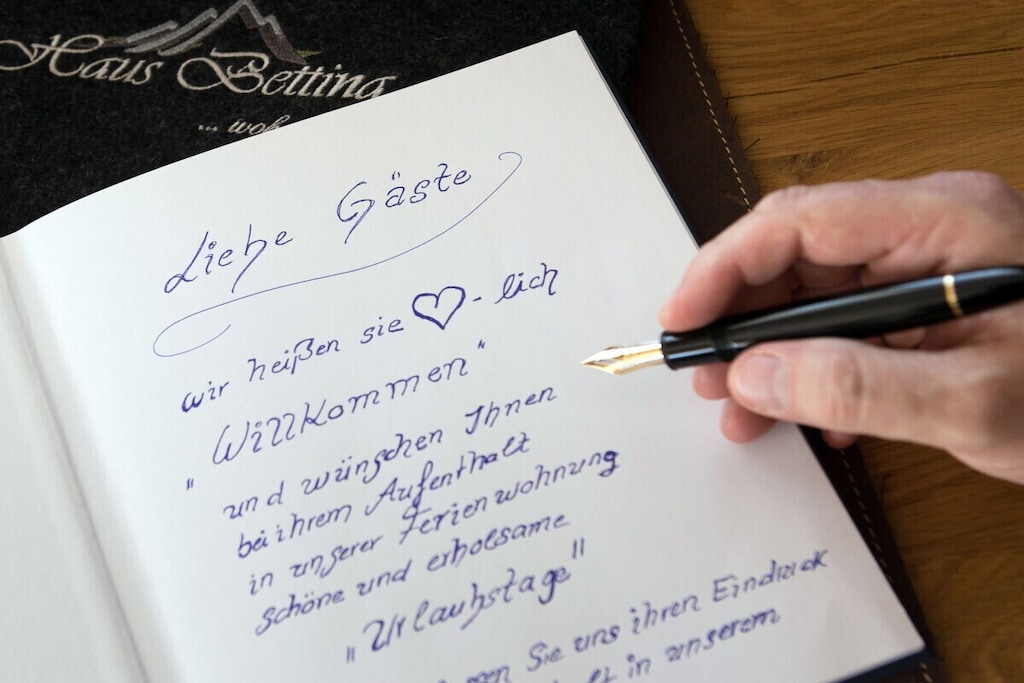 Haus Betting
... woh
Liebe Gäste
wir heißen sie ♡-lich
"Willkommen"
und wünschen Ihnen
bei ihrem Aufenthalt
in unserer Ferienwohnung
schöne und erholsame
"Urlaubstage"
Sie uns ihren Eindruck
in unserem